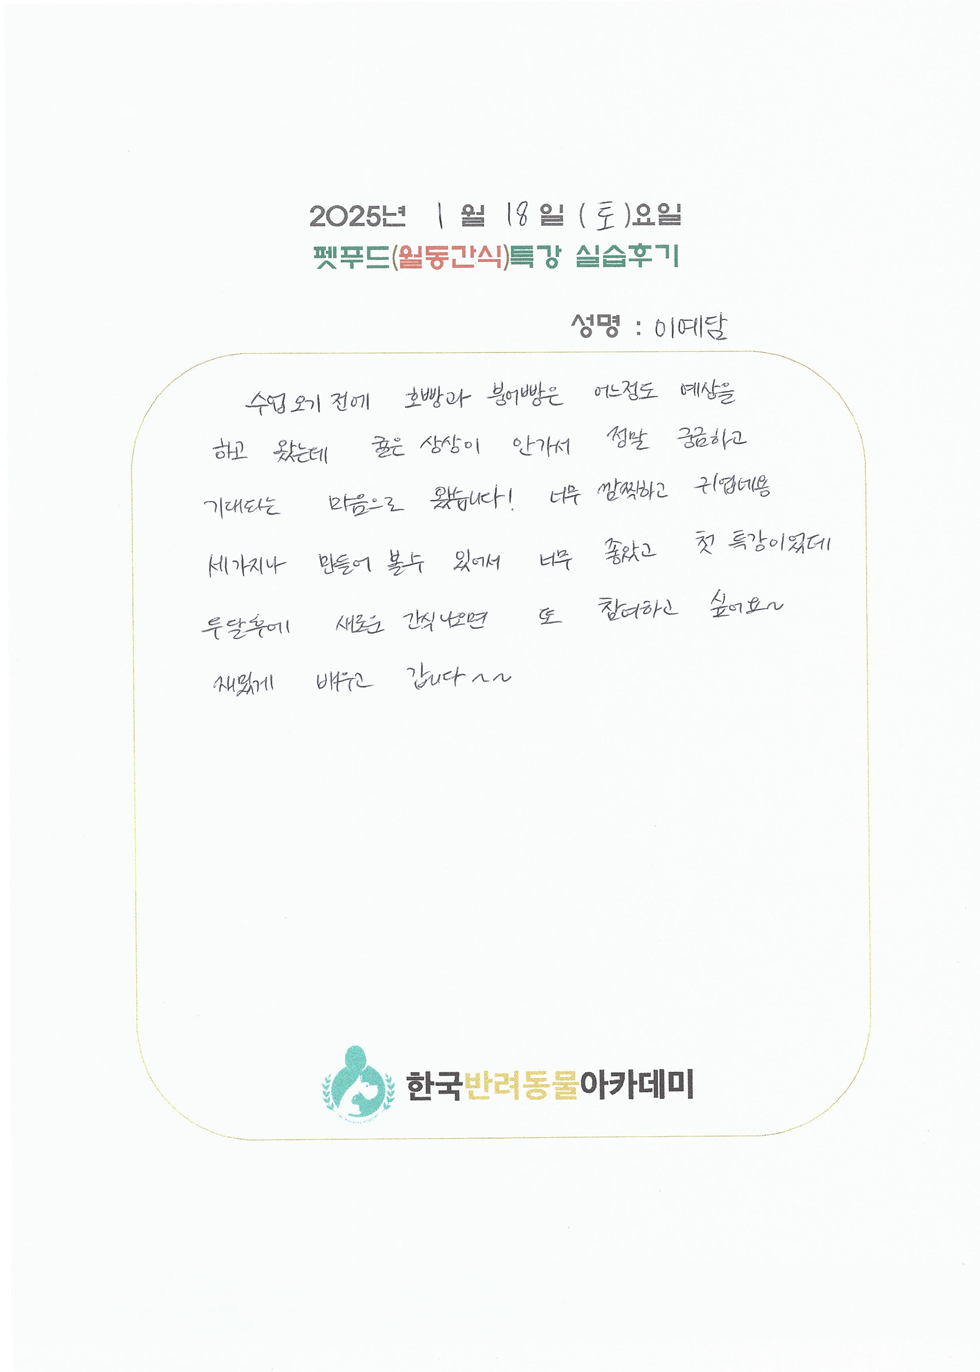 2025년 1월 18일 (토)요일
펫푸드(월동간식)특강 실습후기
성명 : 이예달
수업 오기 전에 호빵과 붕어빵은 어느정도 예상을
하고 왔는데 귤은 상상이 안가서 정말 궁금하고
기대되는 마음으로 왔습니다! 너무 깜찍하고 귀엽네용
세가지나 만들어 볼수 있어서 너무 좋았고 첫 특강이었데
두달후에 새로운 간식나오면 또 참여하고 싶어요~
재밌게 배우고 갑니다~~
한국반려동물아카데미